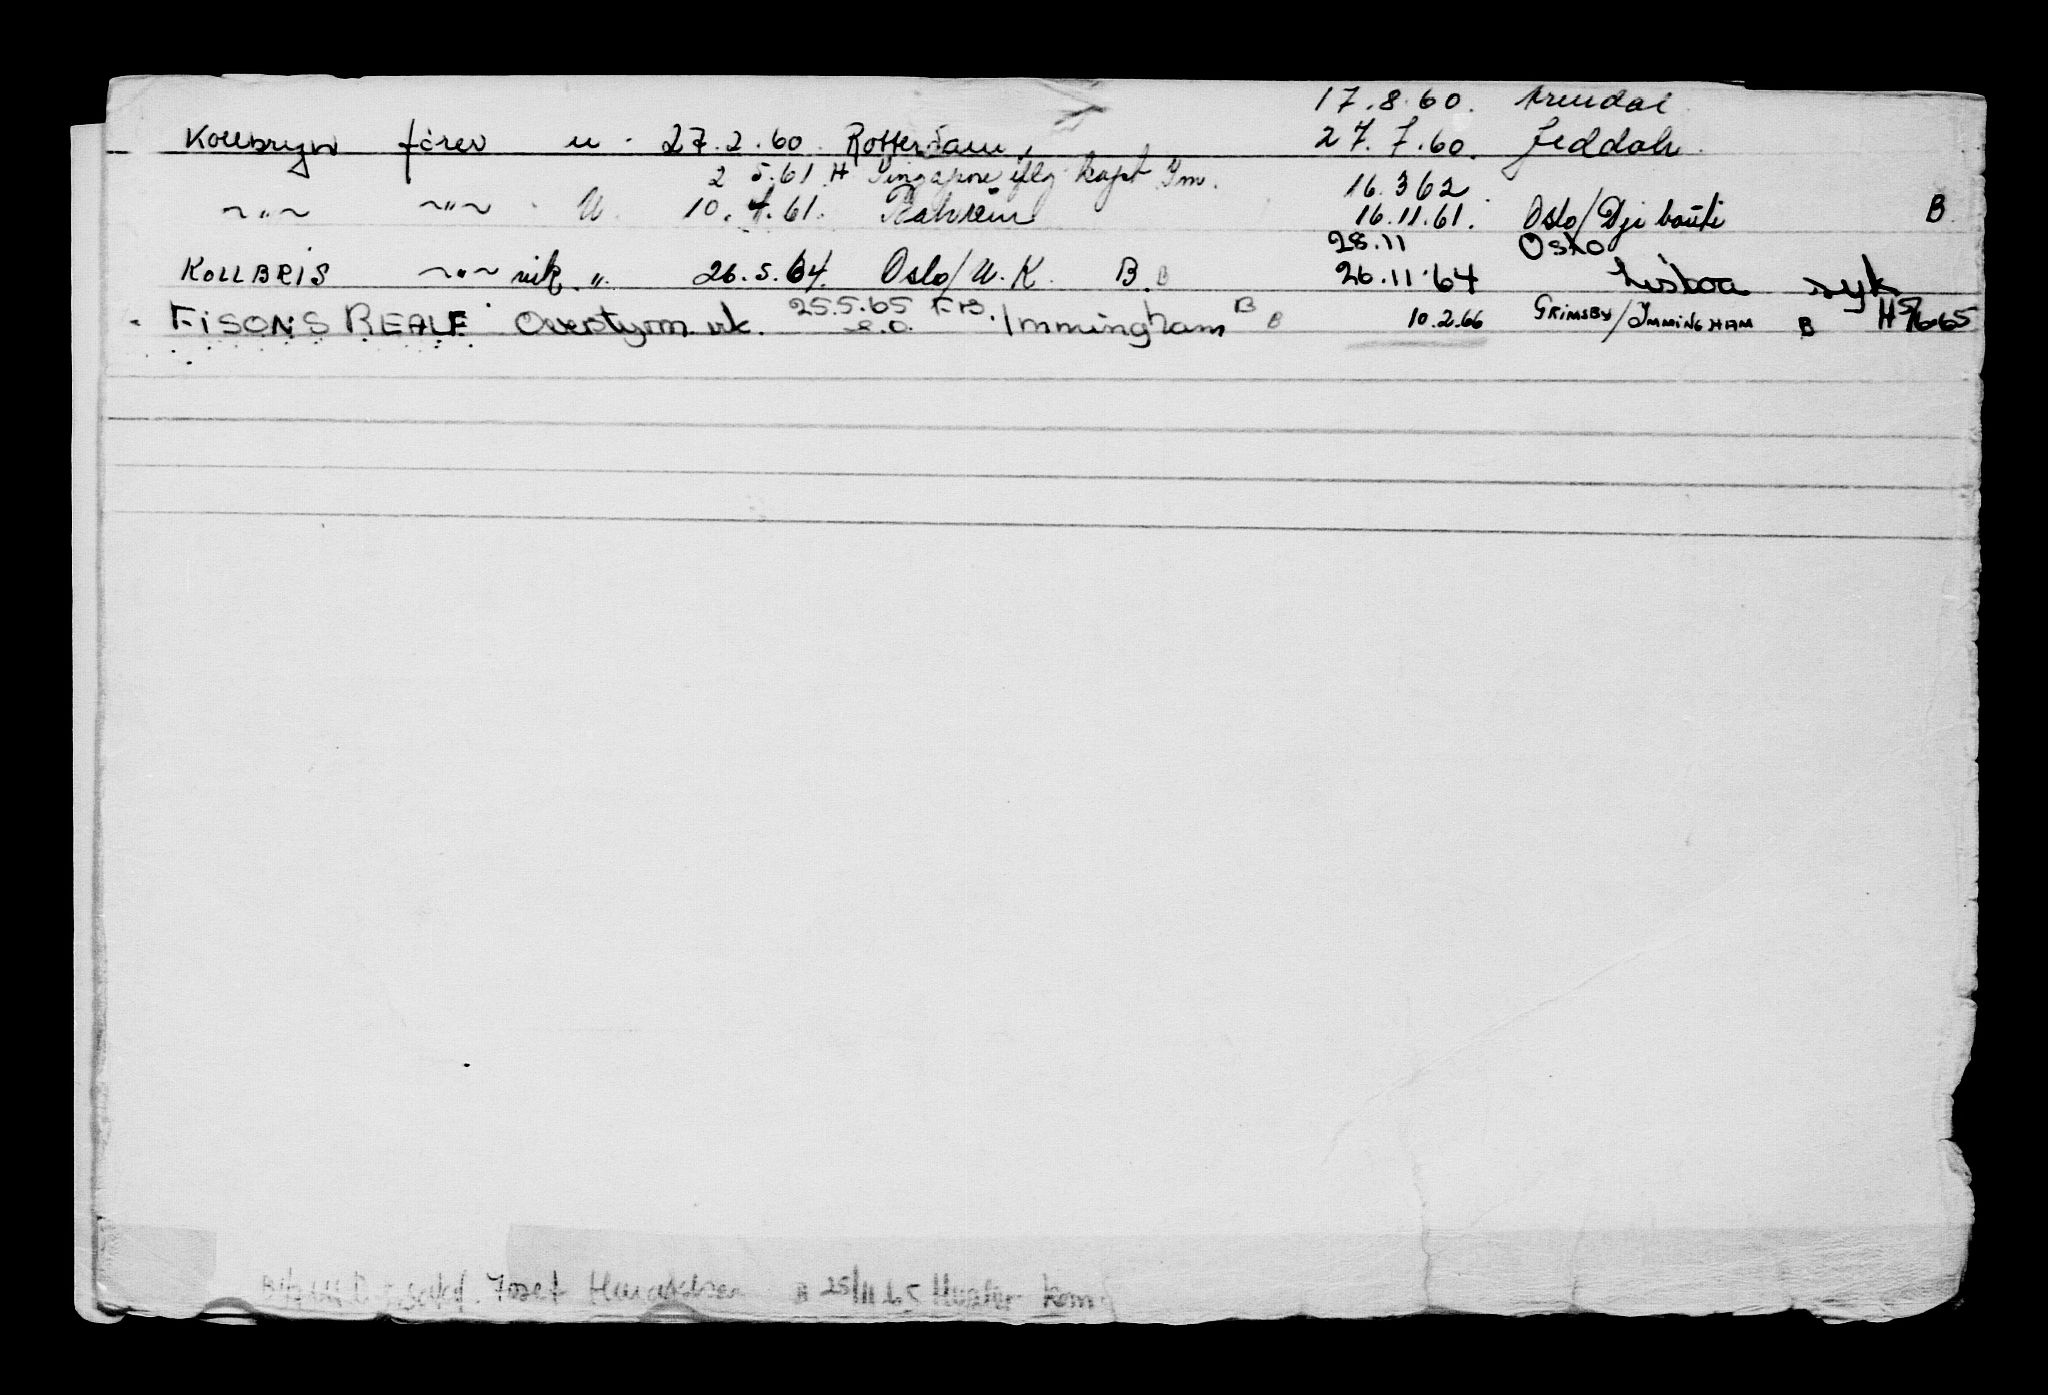 17.8.60. Arendal
Kollbryn fører u. 27.2.60. Rotterdam, 27.7.60. Jeddah.
2 5.61 H Singapore iflg kapt Im. 16.3 62
~"~ ~"~ U. 10.4.61. Bahrein 16.11.61. Oslo/Djibouti B.
28.11 Oslo
KOLLBRIS ~"~ vik. ". 26.5.64. Oslo/U.K. B. B 26.11.64 Lisboa syk
25.5.65 FB. B
FISONS REALF Overstyrm vik. Immingham B 10.2.66 GRIMSBY/IMMINGHAM B H 5/6 65
Josef B 25/11 65 kom